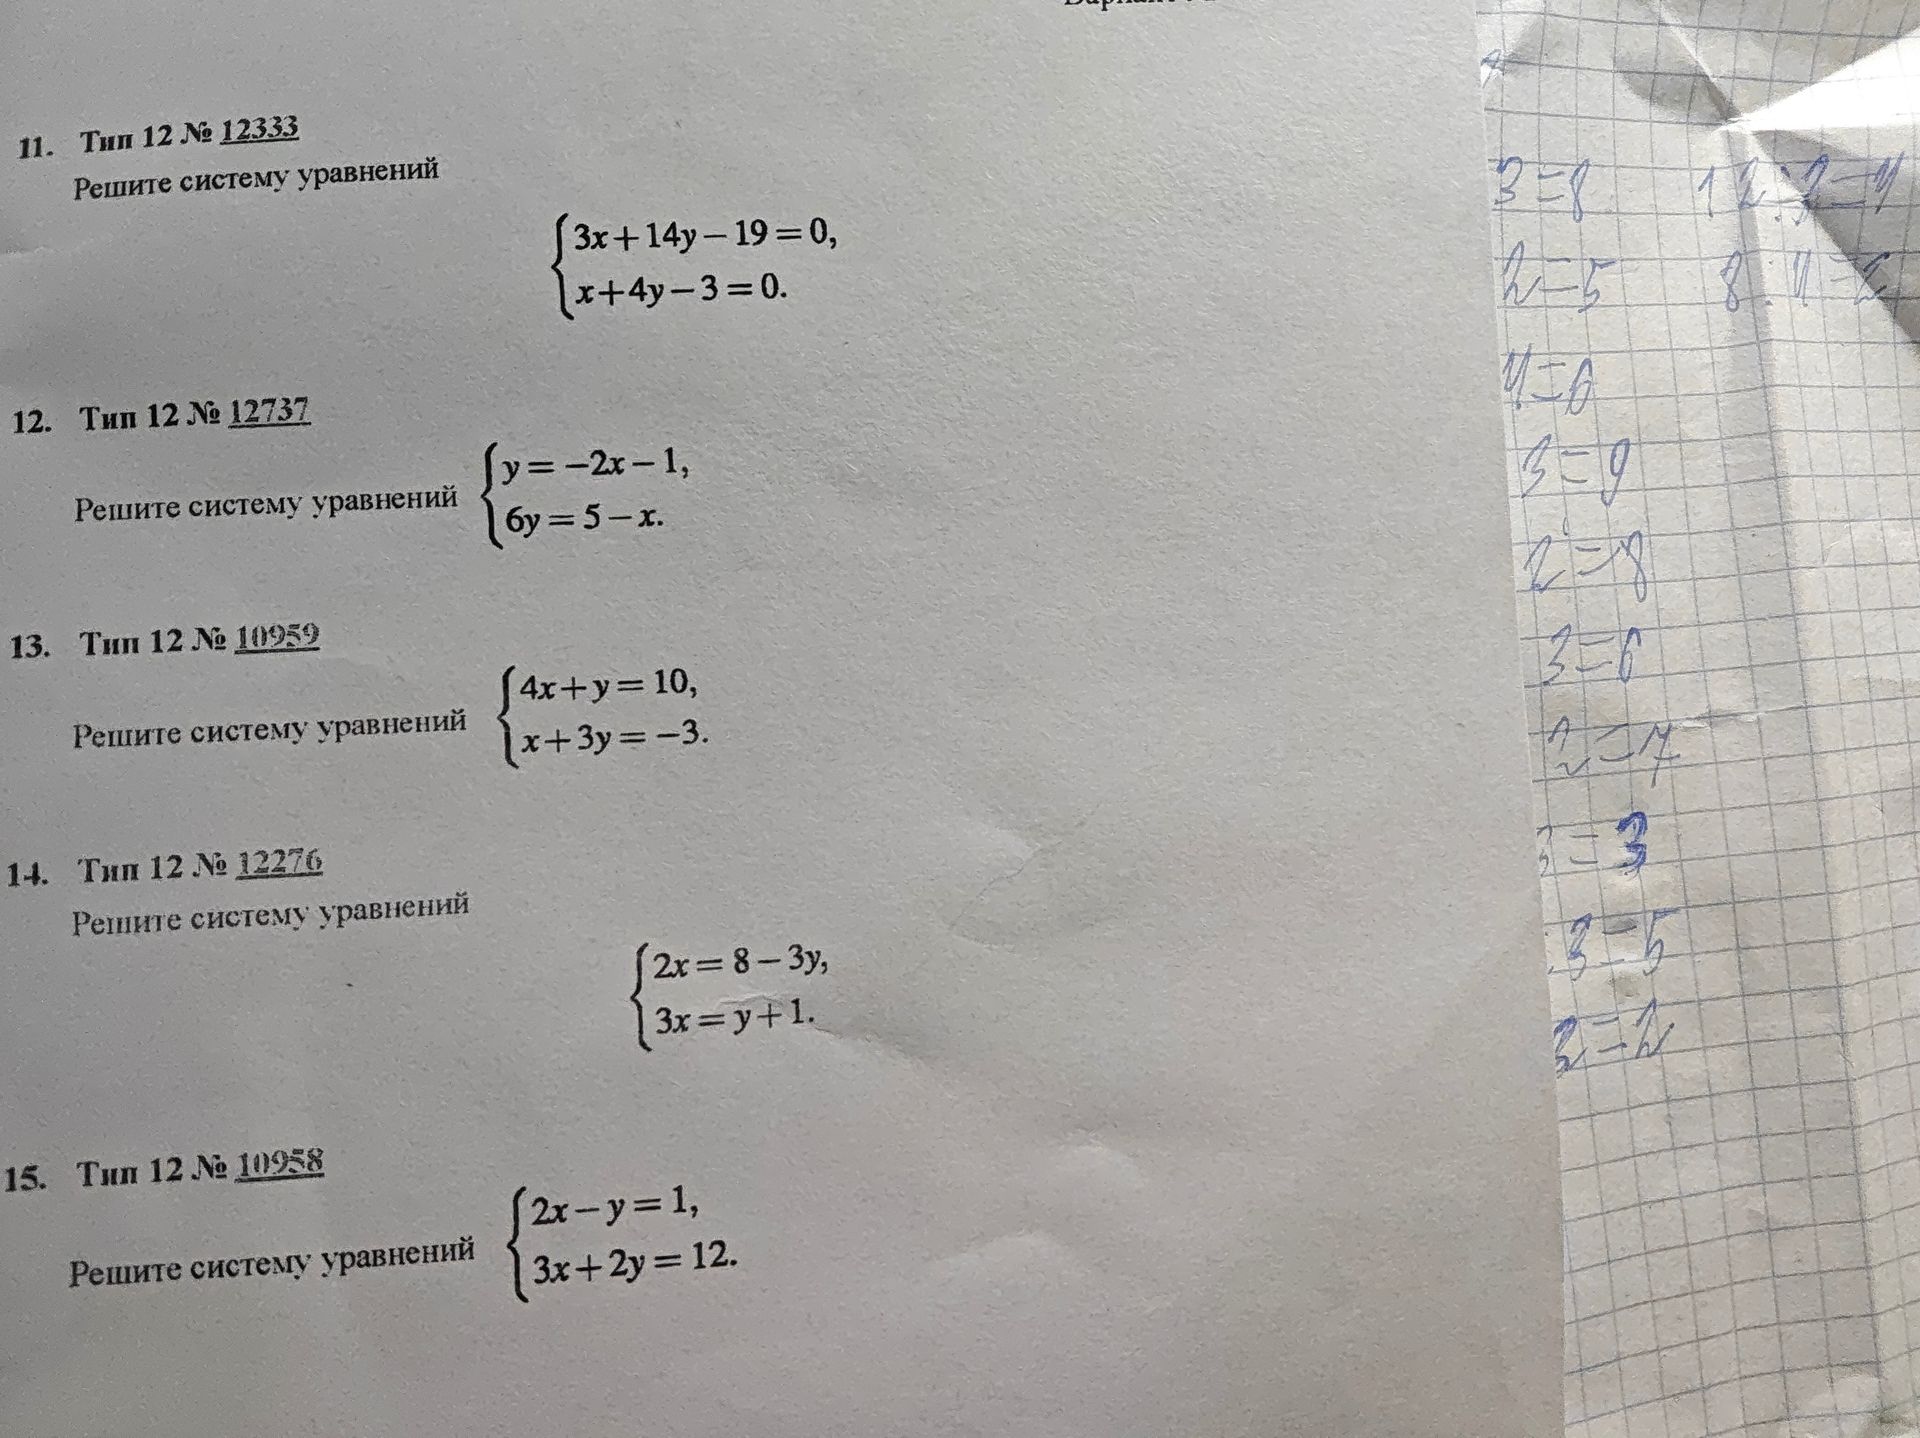 11. Тип 12 № 12333
Решите систему уравнений
3x+14y−19=0,
x+4y−3=0.
12. Тип 12 № 12737
Решите систему уравнений
y=−2x−1,
6y=5−x.
13. Тип 12 № 10959
Решите систему уравнений
4x+y=10,
x+3y=−3.
14. Тип 12 № 12276
Решите систему уравнений
2x=8−3y,
3x=y+1.
15. Тип 12 № 10958
Решите систему уравнений
2x−y=1,
3x+2y=12.
3=8 12:3=4
2=5 8:4=2
4=6
3=9
2=8
3=6
2=7
=3
3=5
2=2